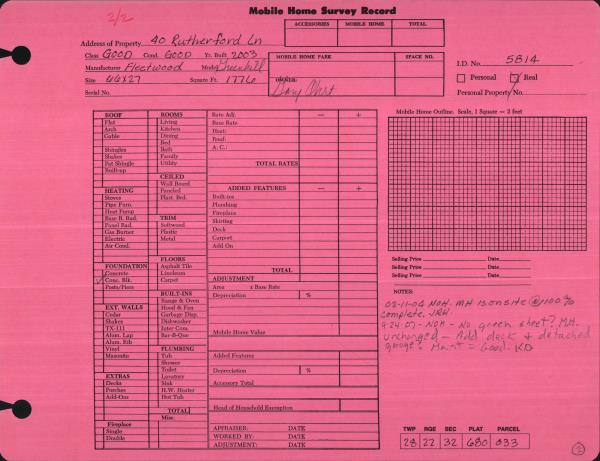 Mobile Home Survey Record
2/2
ACCESSORIES MOBILE HOME TOTAL
Address of Property 40 Rutherford Ln
Class GOOD Cond. GOOD Yr. Built 2003
Manufacturer Fleetwood Model Greenhill
Size 66X27 Square Ft. 1776
Serial No.
MOBILE HOME PARK SPACE NO.
OWNER:
Gary
I.D. No. 5814
Personal Real
Personal Property No.
ROOF
Flat
Arch
Gable
Shingles
Shakes
Pat Shingle
Built-up
HEATING
Stoves
Pipe Furn.
Heat Pump
Base B. Rad.
Panel Rad.
Gas Burner
Electric
Air Cond.
FOUNDATION
Concrete
✓ Conc. Blk.
Posts/Piers
EXT. WALLS
Cedar
Shakes
TX-111
Alum. Lap
Alum. Rib
Vinyl
Masonite
EXTRAS
Decks
Porches
Add-Ons
Fireplace
Single
Double
ROOMS
Living
Kitchen
Dining
Bed
Bath
Family
Utility
CEILED
Wall Board
Paneled
Plast. Bed.
TRIM
Softwood
Plastic
Metal
FLOORS
Asphalt Tile
Linoleum
Carpet
BUILT-INS
Range & Oven
Hood & Fan
Garbage Disp.
Dishwasher
Inter Com.
Bar-B-Que
PLUMBING
Tub
Shower
Toilet
Lavatory
Sink
H.W. Heater
Hot Tub
TOTAL
Misc.
Rate Adj. — +
Base Rate
Heat:
Roof:
A. C.:
TOTAL RATES
ADDED FEATURES — +
Built-ins
Plumbing
Fireplace
Skirting
Deck
Carport
Add On
TOTAL
ADJUSTMENT
Area x Base Rate
Depreciation %
Mobile Home Value
Added Features
Depreciation %
Accessory Total
Head of Household Exemption
APPRAISER: DATE
WORKED BY: DATE
ADJUSTMENT: DATE
Mobile Home Outline. Scale, 1 Square = 2 feet
Selling Price Date
Selling Price Date
Selling Price Date
NOTES:
03-11-04 NOH. MH is onsite @ 100%
complete. JRH
9-24-07 - NOH - No green sheet? MH.
unchanged - Add deck & detached
garage? Maint = Good. KD
TWP RGE SEC PLAT PARCEL
28 22 32 680 033
2